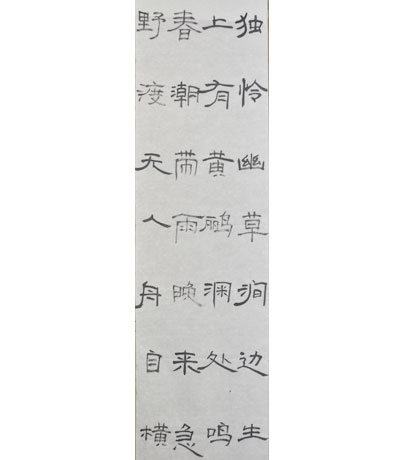 独怜幽草涧边生
上有黄鹂深处鸣
春潮带雨晚来急
野渡无人舟自横